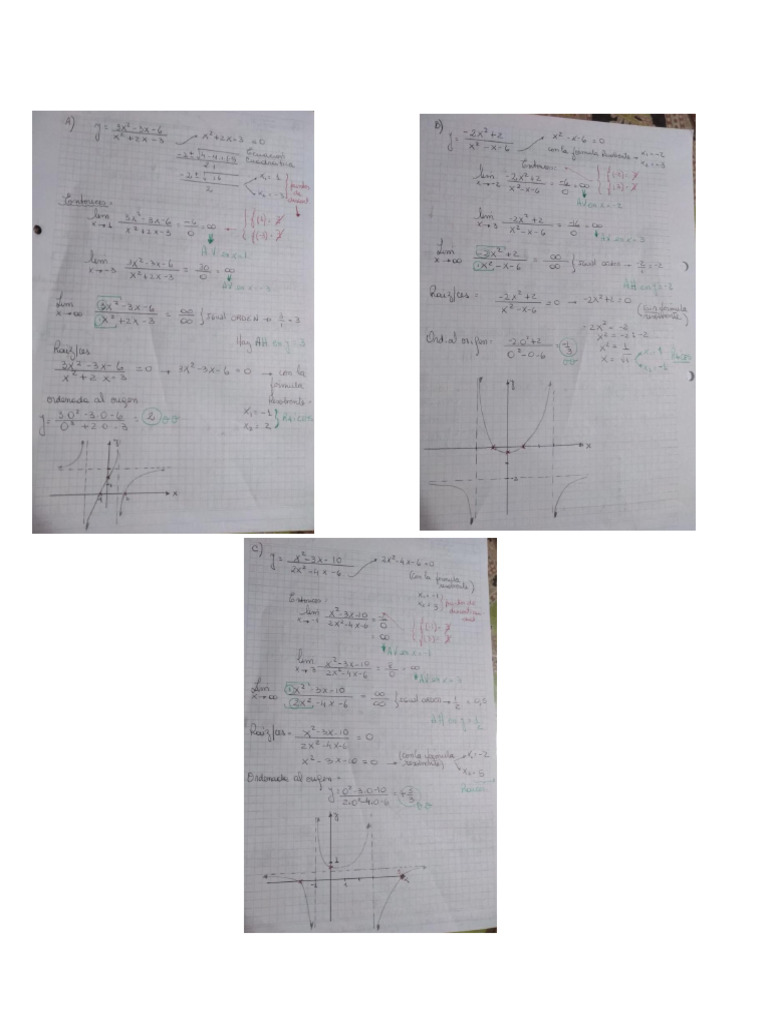 A)
y = 3x² - 3x - 6 / x² + 2x - 3 → x² + 2x - 3 = 0
x₁ = 1
puntos de
Entonces:
lim x→1 3x² - 3x - 6 / x² + 2x - 3 = -6/0 = ∞
lim x→-3 3x² - 3x - 6 / x² + 2x - 3 = 30/0 = ∞
AV en x = -3
Lim x→∞ 3x² - 3x - 6 / x² + 2x - 3 = ∞/∞ { Igual ORDEN → 3/1 = 3
Hay AH en y = 3
Raiz/ces
3x² - 3x - 6 / x² + 2x - 3 = 0 → 3x² - 3x - 6 = 0 → con la fórmula Resolvente =
x₁ = -1
x₂ = 2 } Raices
ordenada al origen
y = 3.0² - 3.0 - 6 / 0² + 2.0 - 3 = 2 oo
y
x
B)
y = -2x² + 2 / x² - x - 6 → x² - x - 6 = 0
con la fórmula Resolvente x₁ = -2
Entonces:
lim x→-2 -2x² + 2 / x² - x - 6 = -6/0 = ∞
AV en x = -2
lim x→3 -2x² + 2 / x² - x - 6 = -16/0 = ∞
AV en x = 3
Lim x→∞ -2x² + 2 / x² - x - 6 = ∞/∞ { Igual orden → -2/1 = -2
Raiz/ces = -2x² + 2 / x² - x - 6 = 0 → -2x² + 2 = 0
-2x² = -2
x² = -2 : -2
x² = 1
x = √1
Ord. al origen: -2.0² + 2 / 0² - 0 - 6 = -1/3
x
-2
C)
y = x² - 3x - 10 / 2x² - 4x - 6 → 2x² - 4x - 6 = 0
(con la fórmula resolvente)
x₁ = -1
x₂ = 3 } puntos de
Entonces:
lim x→-1 x² - 3x - 10 / 2x² - 4x - 6
= ∞
AV en x = -1
lim x→3 x² - 3x - 10 / 2x² - 4x - 6
AV en x = 3
Lim x→∞ 1x² - 3x - 10 / 2x² - 4x - 6 = ∞/∞ { igual orden → 1/2 = 0,5
AH en y = 1/2
Raiz/ces = x² - 3x - 10 / 2x² - 4x - 6 = 0
x² - 3x - 10 = 0 → (con la fórmula resolvente) x₁ = -2
x₂ = 5
Raices
Ordenada al origen =
y = 0² - 3.0 - 10 / 2.0² - 4.0 - 6
y